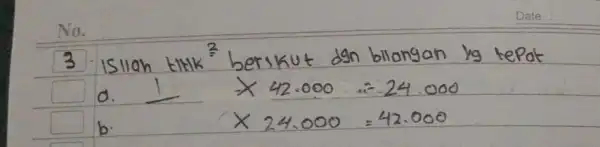 No. Date
3 Isilah titik² berikut dgn bilangan yg tepat
a. 1 × 42.000 = 24.000
b. × 24.000 = 42.000